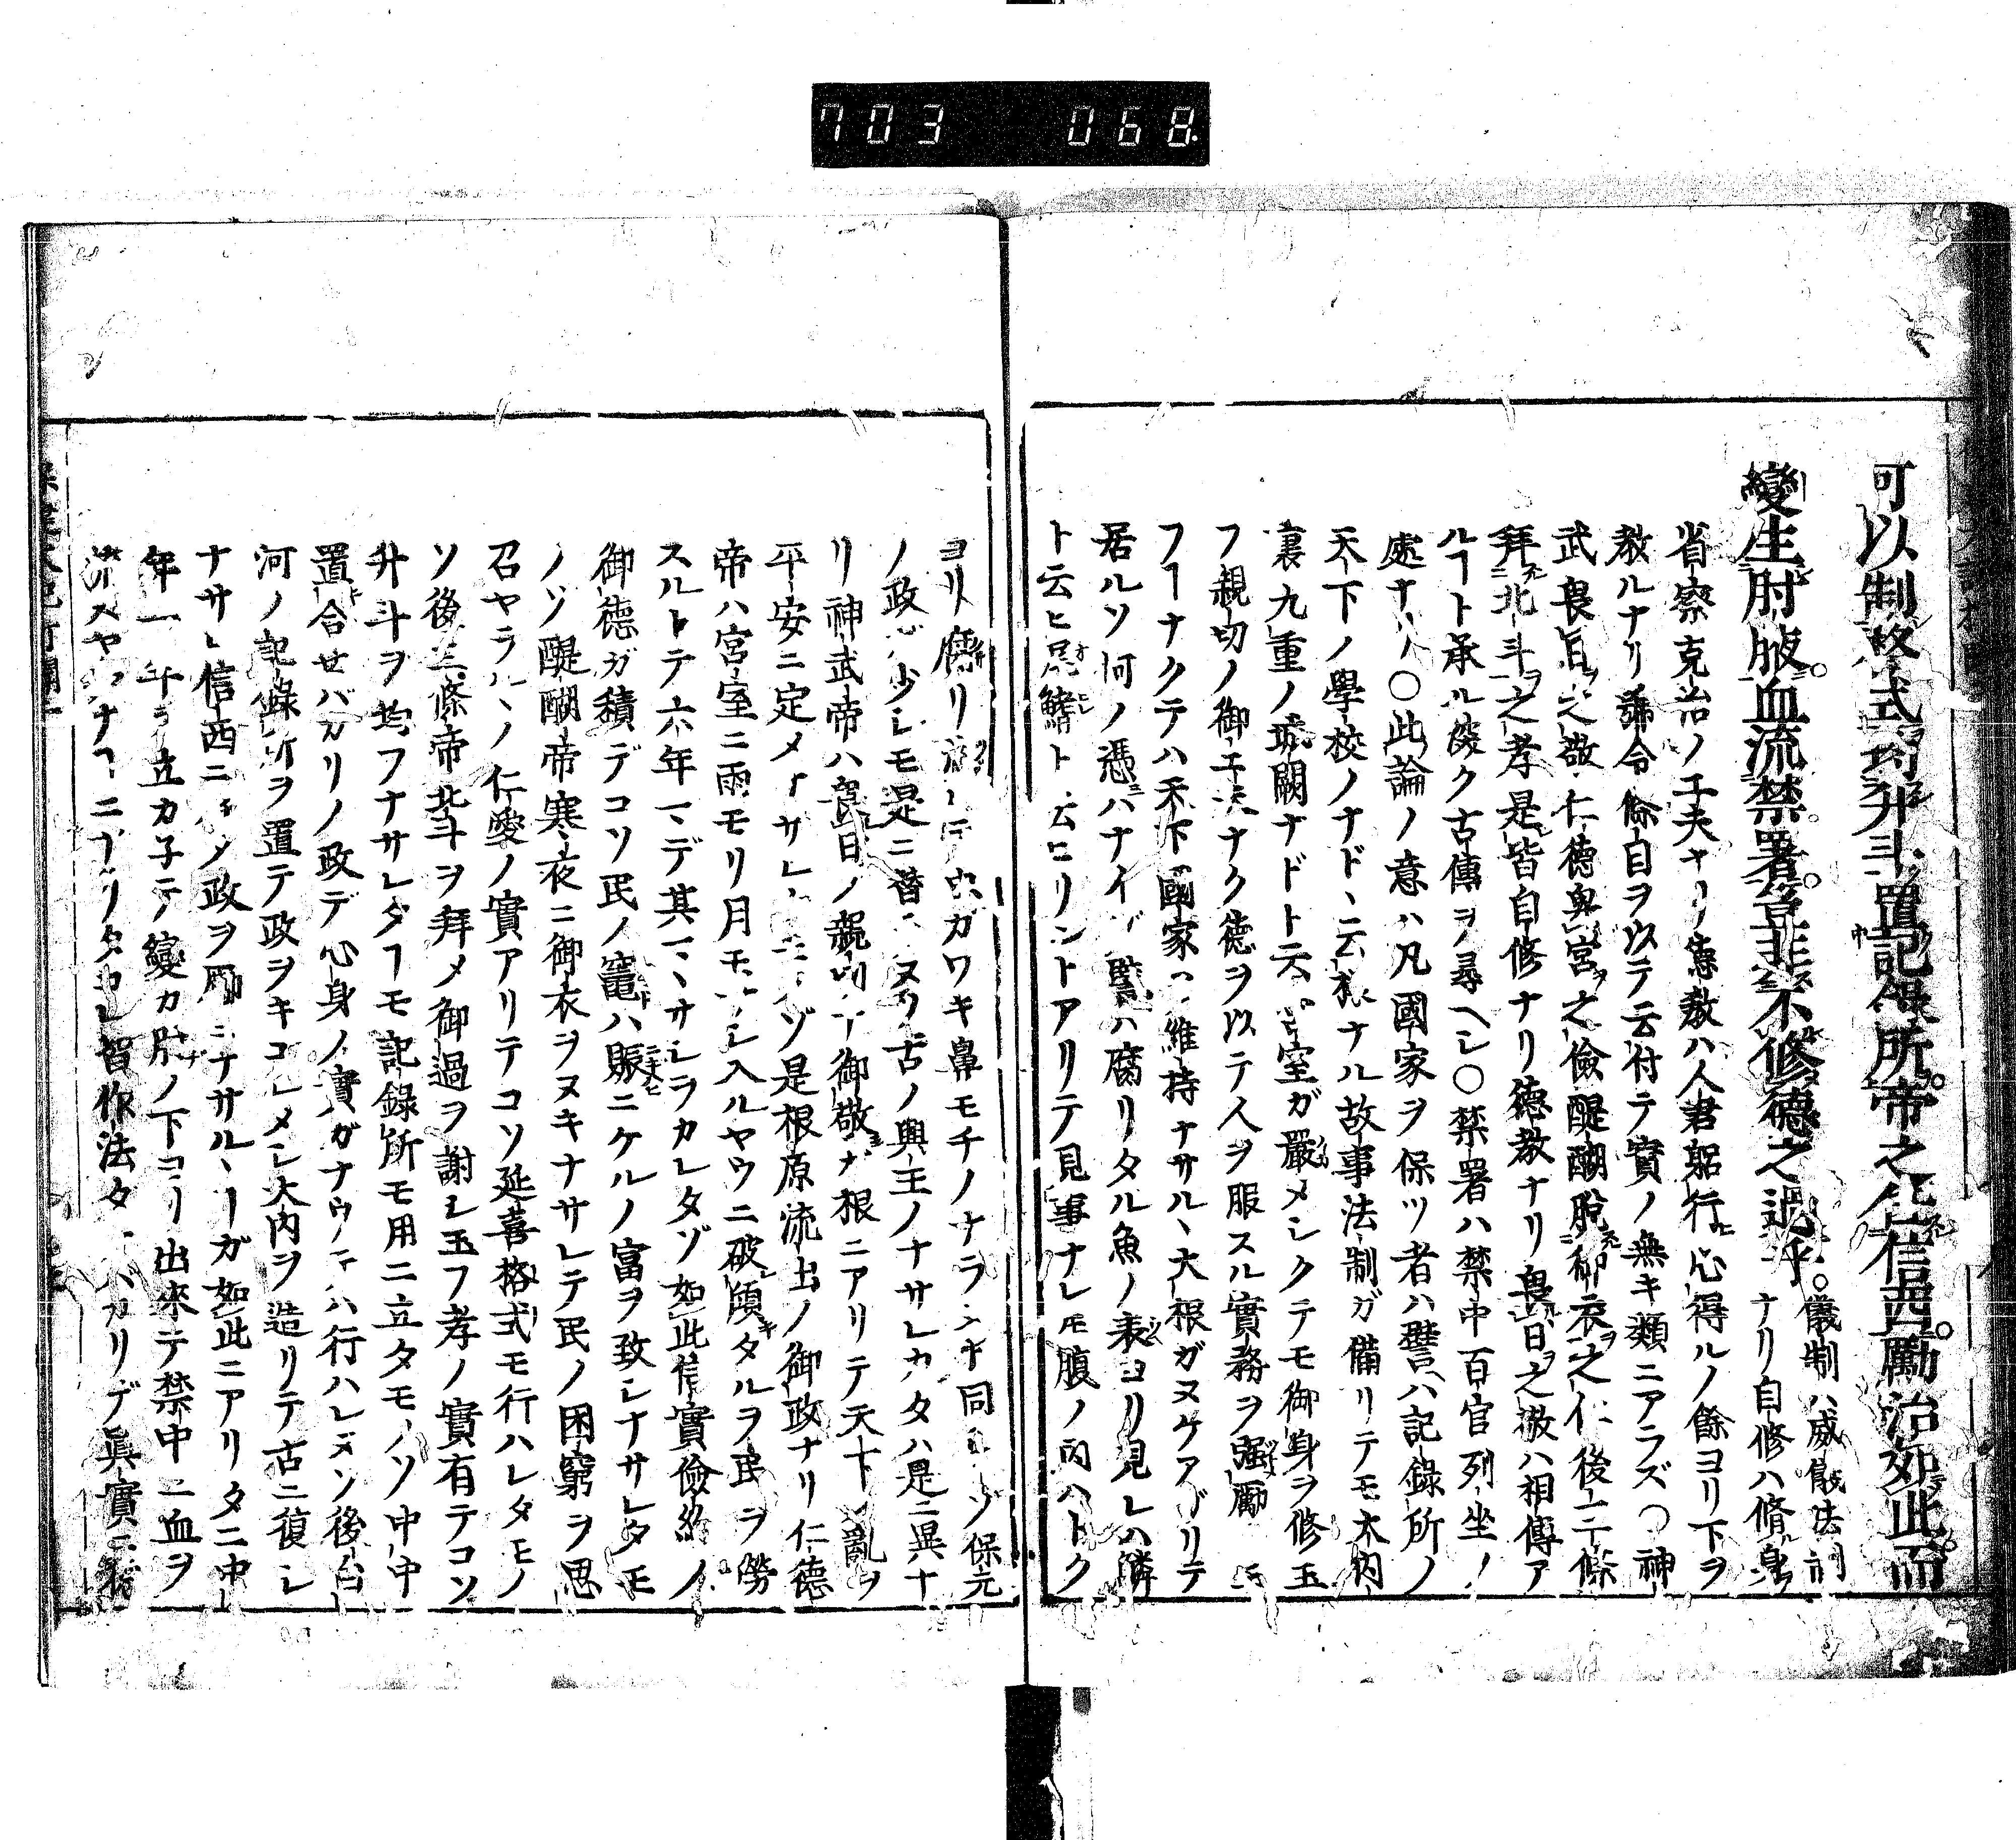 703 068
可以制整式均升斗置記録所。帝之任信西。勵治如此。而
變生肘腋。血流禁署。豈非不修德之過乎。儀制ハ威儀法制
ナリ自修ハ脩身
省察克治ノ工夫ナリ德教ハ人君躬行心得ルノ餘ヨリ下ヲ
教ルナリ號令條目ヲ以テ云付テ實ノ無キ類ニアラズ○神
武畏日之敬仁德卑宮之儉醍醐脫御衣之仁後三條
拜北斗之孝是皆自修ナリ德教ナリ畏日之敬ハ相傳ア
ルヿト承ル醗ク古傳ヲ尋ヘシ○禁署ハ禁中百官列坐ノ
處ナリ○此論ノ意ハ凡國家ヲ保ツ者ハ譬ハ記錄所ノ
天下ノ學校ノナドヽ云樣ナル故事法制ガ備リテモ大內
裏九重ノ城闕ナドト云 室ガ嚴メシクテモ御身ヲ修玉
フ親切ノ御工夫ナク德ヲ以テ人ヲ服スル實務ヲ强勵 玉
フヿナクテハ天下國家ヽ維持ナサルヽ大根ガヌケアガリテ
居ルソ何ノ憑ハナイゾ譬ハ腐リタル魚ノ表ヨリ見レハ鱗
ト云ヒ尾鰭ト云ヒリントアリテ見事ナレモ腹ノ內ハトク
ヨリ腐リ 虫ガワキ鼻モチノナラヌト同シゾ保元
ノ政ハ少シモ是ニ替ラヌソ古ノ興王ノナサレカタハ是ニ異ナ
リ神武帝ハ畏日ノ 御敬ガ根ニアリテ天下ノ亂ヲ
平安ニ定メナサレ ゾ是根原流出ノ御政ナリ仁德
帝ハ宮室ニ雨モリ月モサシ入ルヤウニ破傾タルヲ民ヲ勞
スルトテ六年マデ其マヽサシヲカレタゾ如此信實儉約ノ
御德ガ積デコソ民ノ竈ハ賑ニケルノ富ヲ致シナサレタモ
ノゾ醍醐帝寒夜ニ御衣ヲヌキナサレテ民ノ困窮ヲ思
召ヤラルヽノ仁愛ノ實アリテコソ延喜格式モ行ハレタモノ
ソ後三條帝北斗ヲ拜メ御過ヲ謝シ玉フ孝ノ實有テコソ
升斗ヲ均フナサレタヿモ記錄所モ用ニ立タモノソ中中
置合セバカリノ政デ心身ノ實ガナウテハ行ハレヌソ後白
河ノ記錄所ヲ置テ政ヲキコシメシ大內ヲ造リテ古ニ復シ
ナサレ信西ニ 政ヲ勵ニナサルヽヿガ如此ニアリタニ中一
年一年ヲ立カ子テ變カ肘ノ下ヨリ出來テ禁中ニ血ヲ
流スヤウナヿニナリタカレ皆作法タ バカリデ眞實ニ